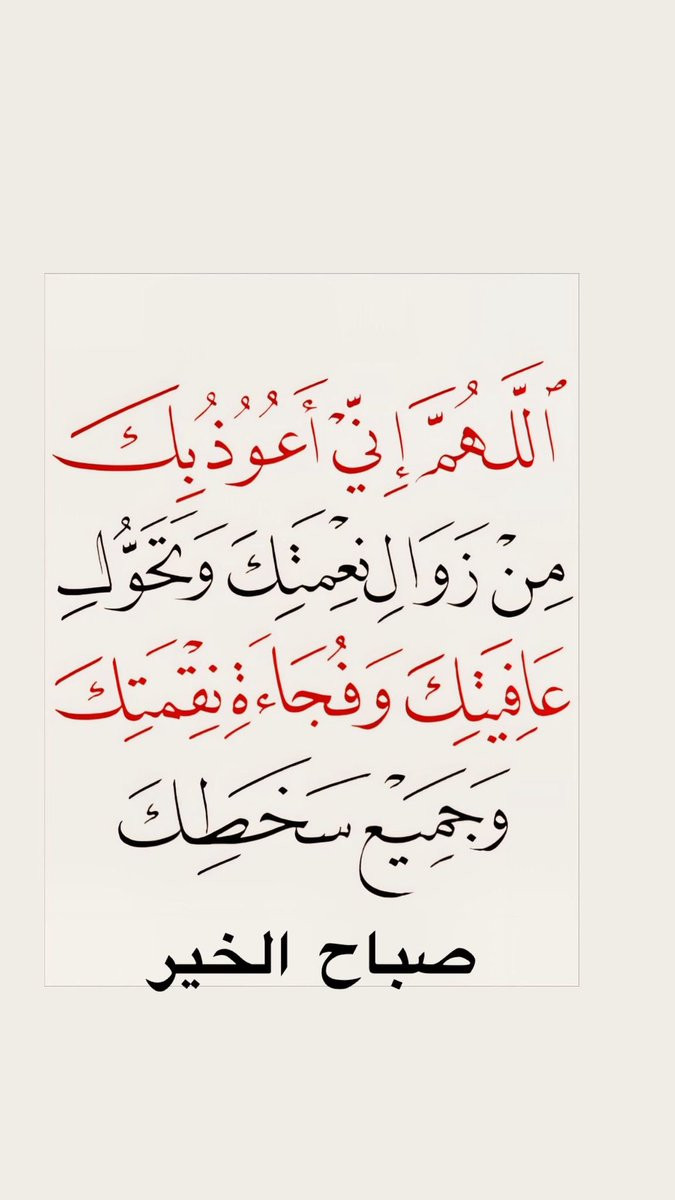 ٱللَّهُمَّ إِنِّيْ أَعُوُذُبِكَ
مِنْ زَوَالِ نِعْمَتِكَ وَتَحَوُّلِ
عَافِيَتِكَ وَفُجَاءَةِ نِقْمَتِكَ
وَجَمِيْعِ سَخَطِكَ
صباح الخير